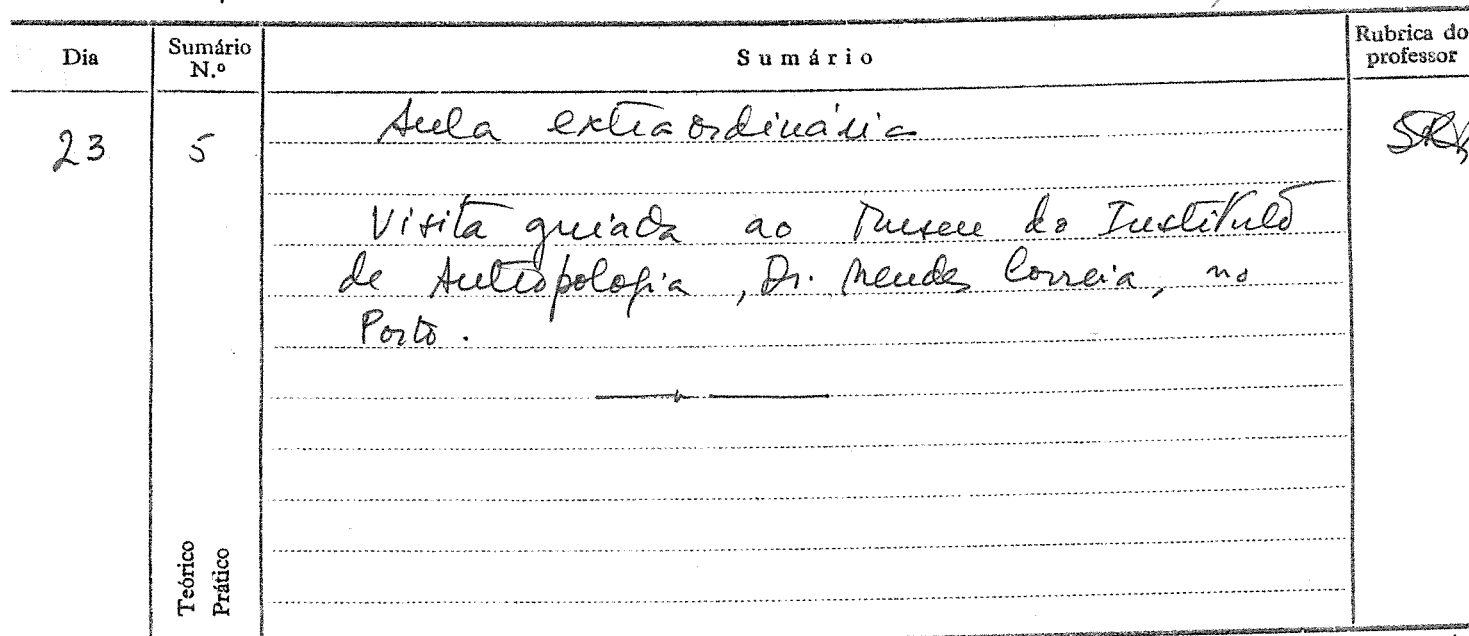 Dia
Sumário N.º
Sumário
Rubrica do professor
23
5
Aula extraordinária
Visita guiada ao Museu do Instituto
de Antropologia, Dr. Mendes Correia, no
Porto.
Teórico
Prático